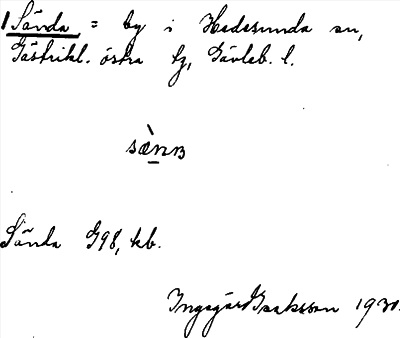 1 Sända = by i Hedesunda sn,
Gästrikl. östra tg, Gävleb. l.
sæ̀nᴃ
Sända G98, kb.
Ingegärd Isaksson 1930.